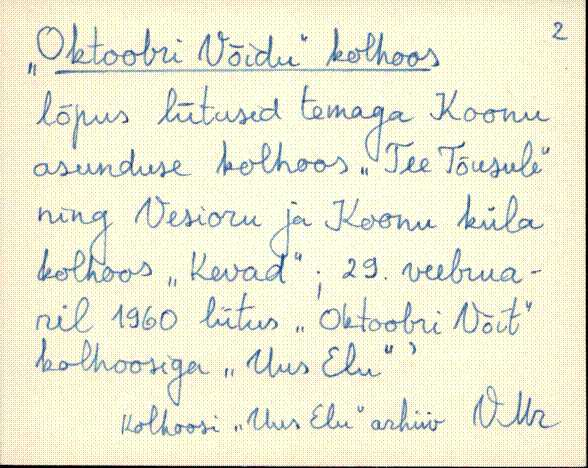 2
„Oktoobri Võidu" kolhoos
lõpus liitusid temaga Koonu
asunduse kolhoos „Tee Tõusule"
ning Vesioru ja Koonu küla
kolhoos „Kevad"; 29. veebrua-
ril 1960 liitus „Oktoobri Võit"
kolhoosiga „Uus Elu"
Kolhoosi „Uus Elu" arhiiv